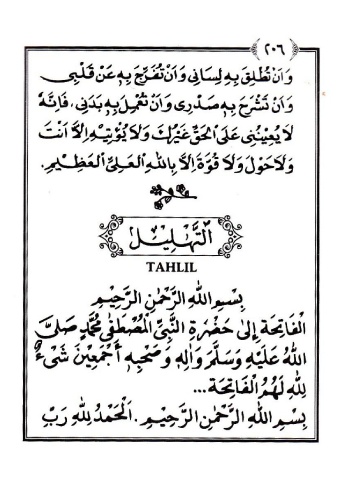 ﴿٢٠٦﴾
وَاَنْ تُطْلِقَ بِهٖ لِسَانِى وَاَنْ تُفَرِّجَ بِهٖ عَنْ قَلْبِى
وَاَنْ تَشْرَحَ بِهٖ صَدْرِى وَاَنْ تَعْمَلَ بِهٖ بَدَنِى، فَاِنَّهُ
لَا يُعِيْنُنِى عَلَى الْحَقِّ غَيْرُكَ وَلَا يُؤْتِيْهِ اِلَّا اَنْتَ
وَلَا حَوْلَ وَلَا قُوَّةَ اِلَّا بِاللهِ الْعَلِىِّ الْعَظِيْمِ.
اَلتَّهْلِيْلُ
TAHLIL
بِسْمِ اللهِ الرَّحْمٰنِ الرَّحِيْمِ
اَلْفَاتِحَةَ اِلَى حَضْرَةِ النَّبِىِّ الْمُصْطَفٰى مُحَمَّدٍ صَلَّى
اللهُ عَلَيْهِ وَسَلَّمَ وَاٰلِهِ وَصَحْبِهِ أَجْمَعِيْنَ شَىْءٌ
لِلّٰهِ لَهُمُ الْفَاتِحَةَ...
بِسْمِ اللهِ الرَّحْمٰنِ الرَّحِيْمِ. اَلْحَمْدُ لِلّٰهِ رَبِّ